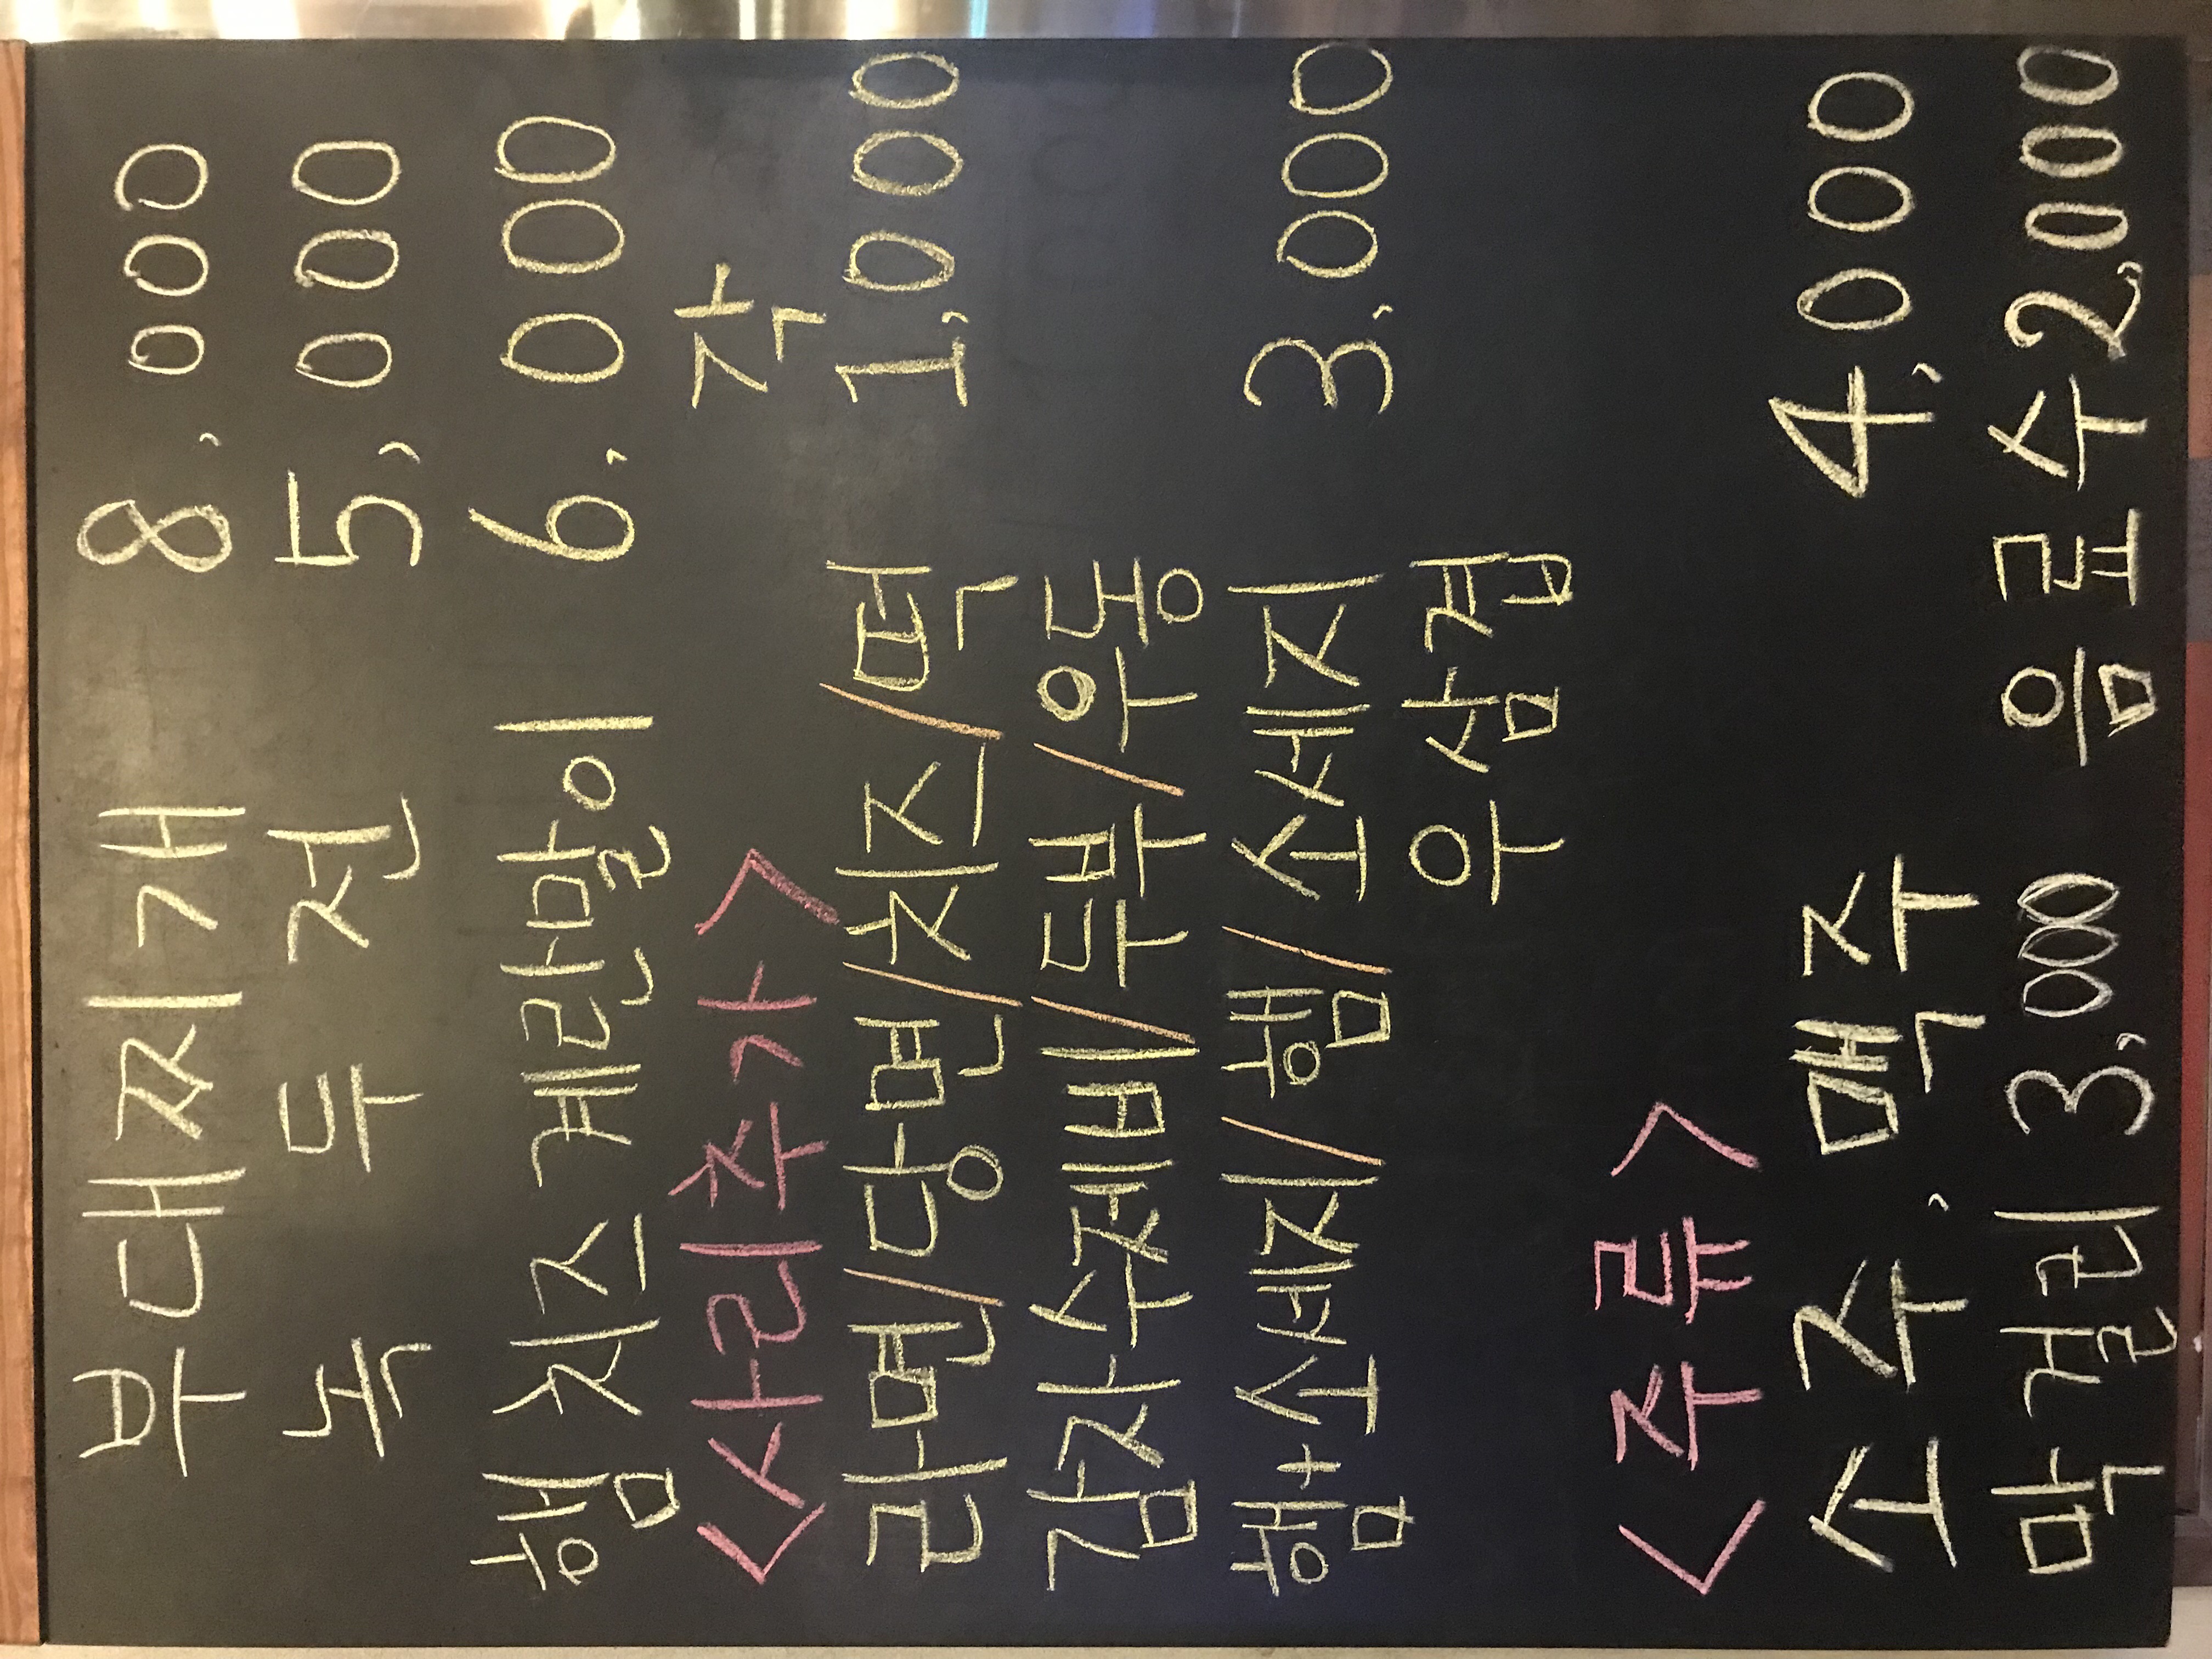 부대찌개 8,000
녹두전 5,000
햄치즈 계란말이 6,000
<사리추가> 각
라면/당면/치즈/떡 1,000
감자수제비/두부/우동
햄+소세지/햄/소세지 3,000
우삼겹
<주류>
소주, 맥주 4,000
막걸리 3,000 음료수 2,000